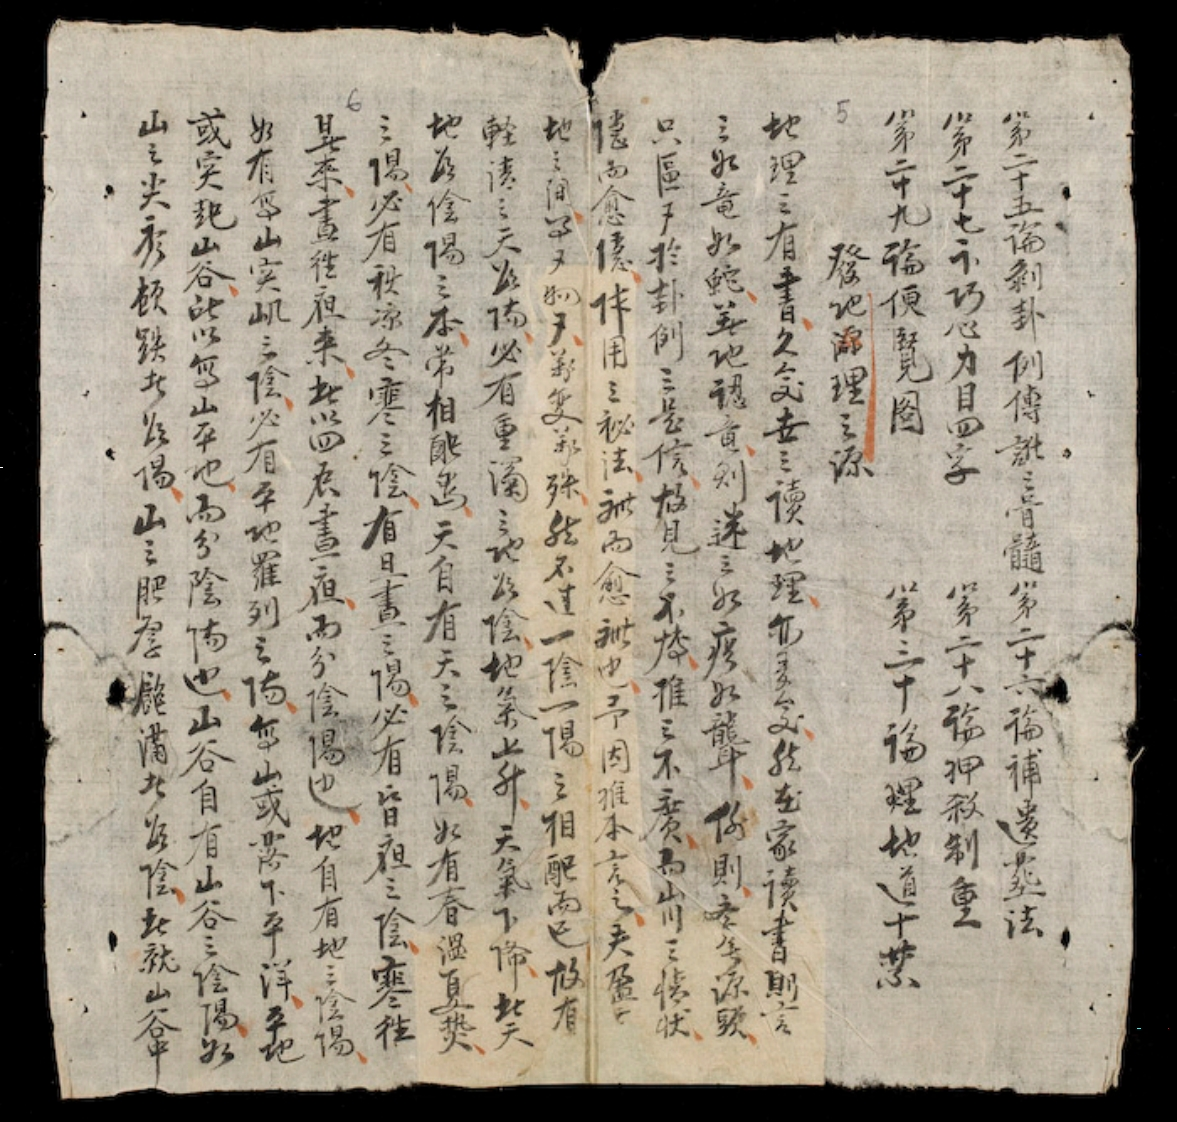 第二十五論剝卦例傳訛之音髓 第二十六論補遺塟法
第二十七示巧心力目四字 第二十八論押殺制重
第二十九論便覽圖 第三十論理地道十禁
5
發地源理之源
地理之有書久矣世之讀地理亦多矣然在家讀書則言
之如竜如蛇葬地認宜則迷之如痴如聾何則无源頭
只區々於卦例之是信故見之不惟之不廣而山川之情狀
隱而愈隱体用之秘法秘而愈秘也予因推本言之夫盈
地之間万物万變殊然不過一陰一陽之相配而已故有
軽清之天為陽必有重濁之地為陰地氣上升天氣下降此天
地為陰陽之本常相配焉天自有天之陰陽如有春温夏熱
6
之陽必有秋凉冬寒之陰有旦晝之陽必有昏夜之陰寒往
暑来晝往夜来此以四辰晝夜而分陰陽也地自有地之陰陽
如有高山突屼之陰必有平地羅列之陽高山或落下平洋平地
或突起山谷此以高山平地而分陰陽也山谷自有山谷之陰陽如
山之尖秀頓跌此為陽山之肥厚飽滿此為陰此就山谷中